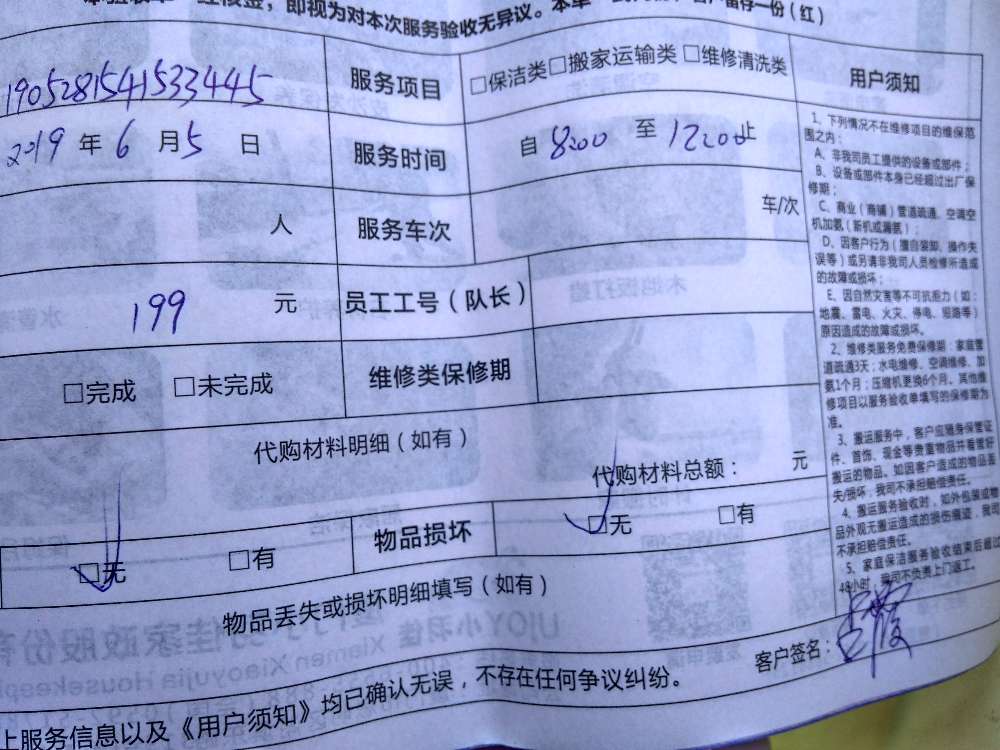 即视为对本次服务验收无异议。
190528154153344​5 服务项目 □保洁类□搬家运输类 □维修清洗类 用户须知
2019年6月5日 服务时间 自 8200 至 1220止
人 服务车次 车/次
199 元 员工工号（队长）
□完成 □未完成 维修类保修期
代购材料明细（如有）
代购材料总额： 元
□无 □有 物品损坏 □无 □有
物品丢失或损坏明细填写（如有）
客户签名：
上服务信息以及《用户须知》均已确认无误，不存在任何争议纠纷。
1、下列情况不在维修项目的维保范
围之内：
A、非我司员工提供的设备或部件；
B、设备或部件本身已经超过出厂保
修期；
C、商业（商铺）管道疏通、空调空
机加氨（新机或漏氨）；
D、因客户行为（擅自装卸、操作失
误等）或另请非我司人员检修所造成
的故障或损坏；
E、因自然灾害等不可抗拒力（如：
地震、雷电、火灾、停电、短路等）
原因造成的故障或损坏。
2、维修类服务免费保修期：家庭管
道疏通3天；水电维修、空调维修、加
氨1个月；压缩机更换6个月。其他维
修项目以服务验收单填写的保修期为
准。
3、搬运服务中，客户应随身保管证
件、首饰、现金等贵重物品并看管好
搬运的物品。如因客户造成的物品丢
失/损坏，我司不承担赔偿责任。
4、搬运服务验收时，如外包装或物
品外观无搬运造成的损伤痕迹，我司
不承担赔偿责任。
5、家庭保洁服务验收结束后超过
48小时，我司不负责上门返工。